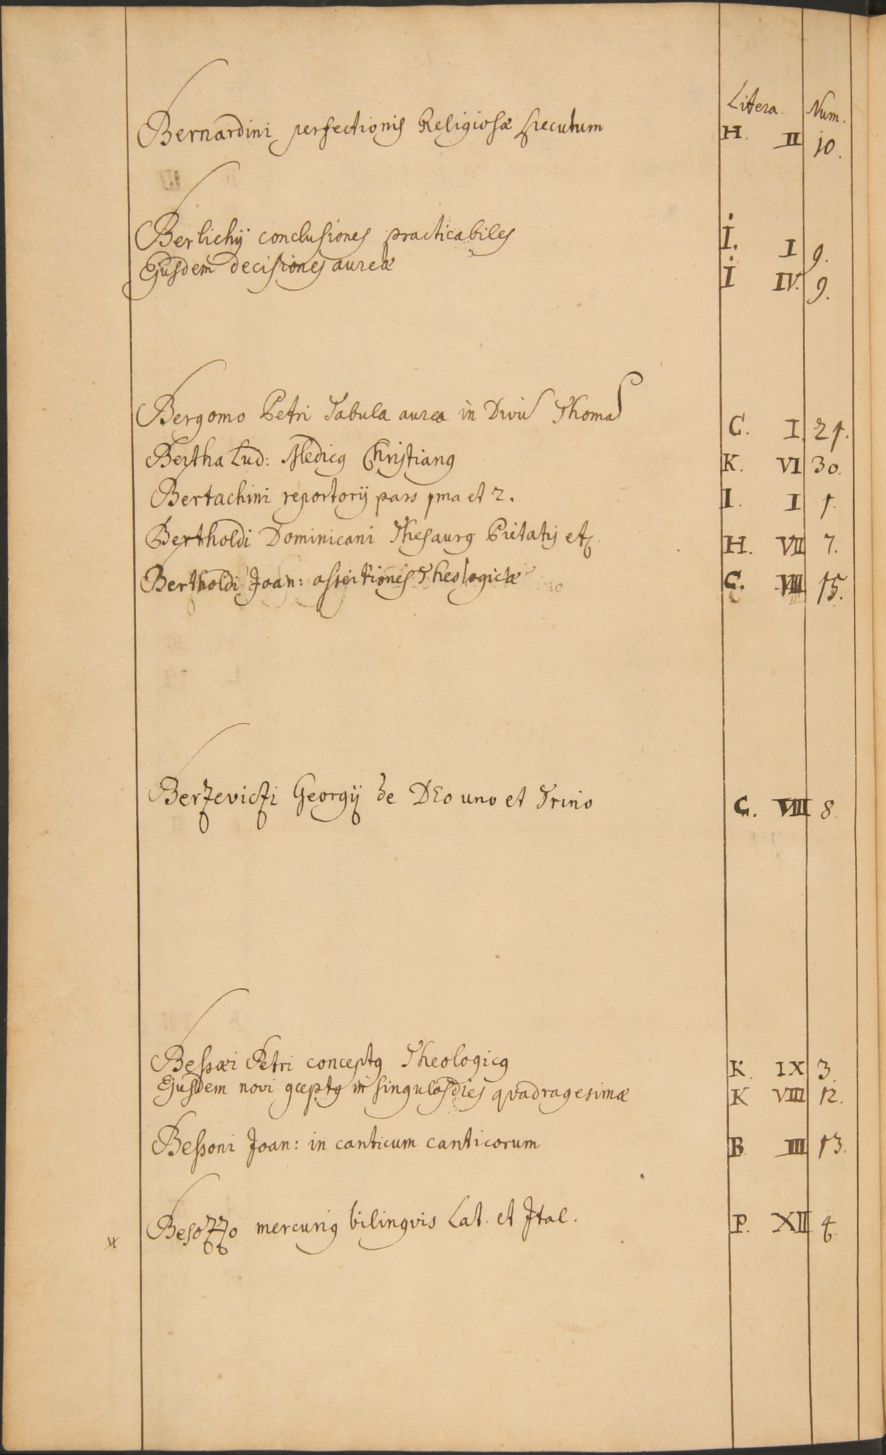 Litera. Num.
Bernardini perfectionis Religiosæ specutum H. II 10.
Berlichij conclusiones practicabiles I. I 9.
Ejusdem decisiones aureæ I IV. 9.
Bergomo Petri Tabula aurea in Divũ Thomã C. I. 21.
Bertha Lud: Medicꝰ Christianꝰ K. VI 30.
Bertachini reportorij pars 1ma et 2. I. I 1.
Bertholdi Dominicani Thesaurꝰ Pietatis etc. H. VII 7.
Bertholdi Joan: assertiones Theologicæ C. VIII 15.
Berzeviczi Georgij de DEo uno et Trino C. VIII 8.
Bessæi Petri conceptꝰ Theologicꝰ K. IX 3.
Ejusdem novi ꝯceptꝰ in singulos dies quadragesimæ K VIII 12.
Bessoni Joan: in canticum canticorum B III 13.
Besozzo mercuriꝰ bilingvis Lat. et Ital. P. XII